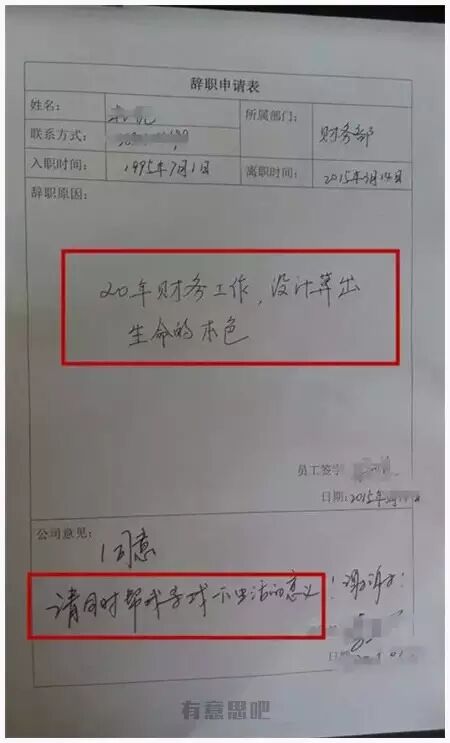 辞职申请表
姓名： 所属部门： 财务部
联系方式：
入职时间： 1995年7月1日 离职时间： 2015年3月14日
辞职原因：
20年财务工作，没计算出
生命的本色
员工签字
日期：2015年
公司意见：
同意
请同时帮我寻找一下生活的意义！谢谢！
日期
有意思吧